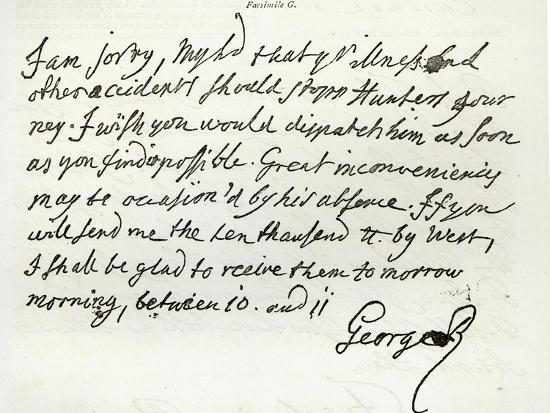 Facsimile G.
I am sorry, My Ld that yr illness and
other accidents should stopp Hunters Jour
ney. I wish you would dispatch him as soon
as you find it possible. Great inconveniencys
may be occasion'd by his absence. If you
will send me the ten thousend tt. by West,
I shall be glad to receive them to morrow
morning, between 10. and 11
George R